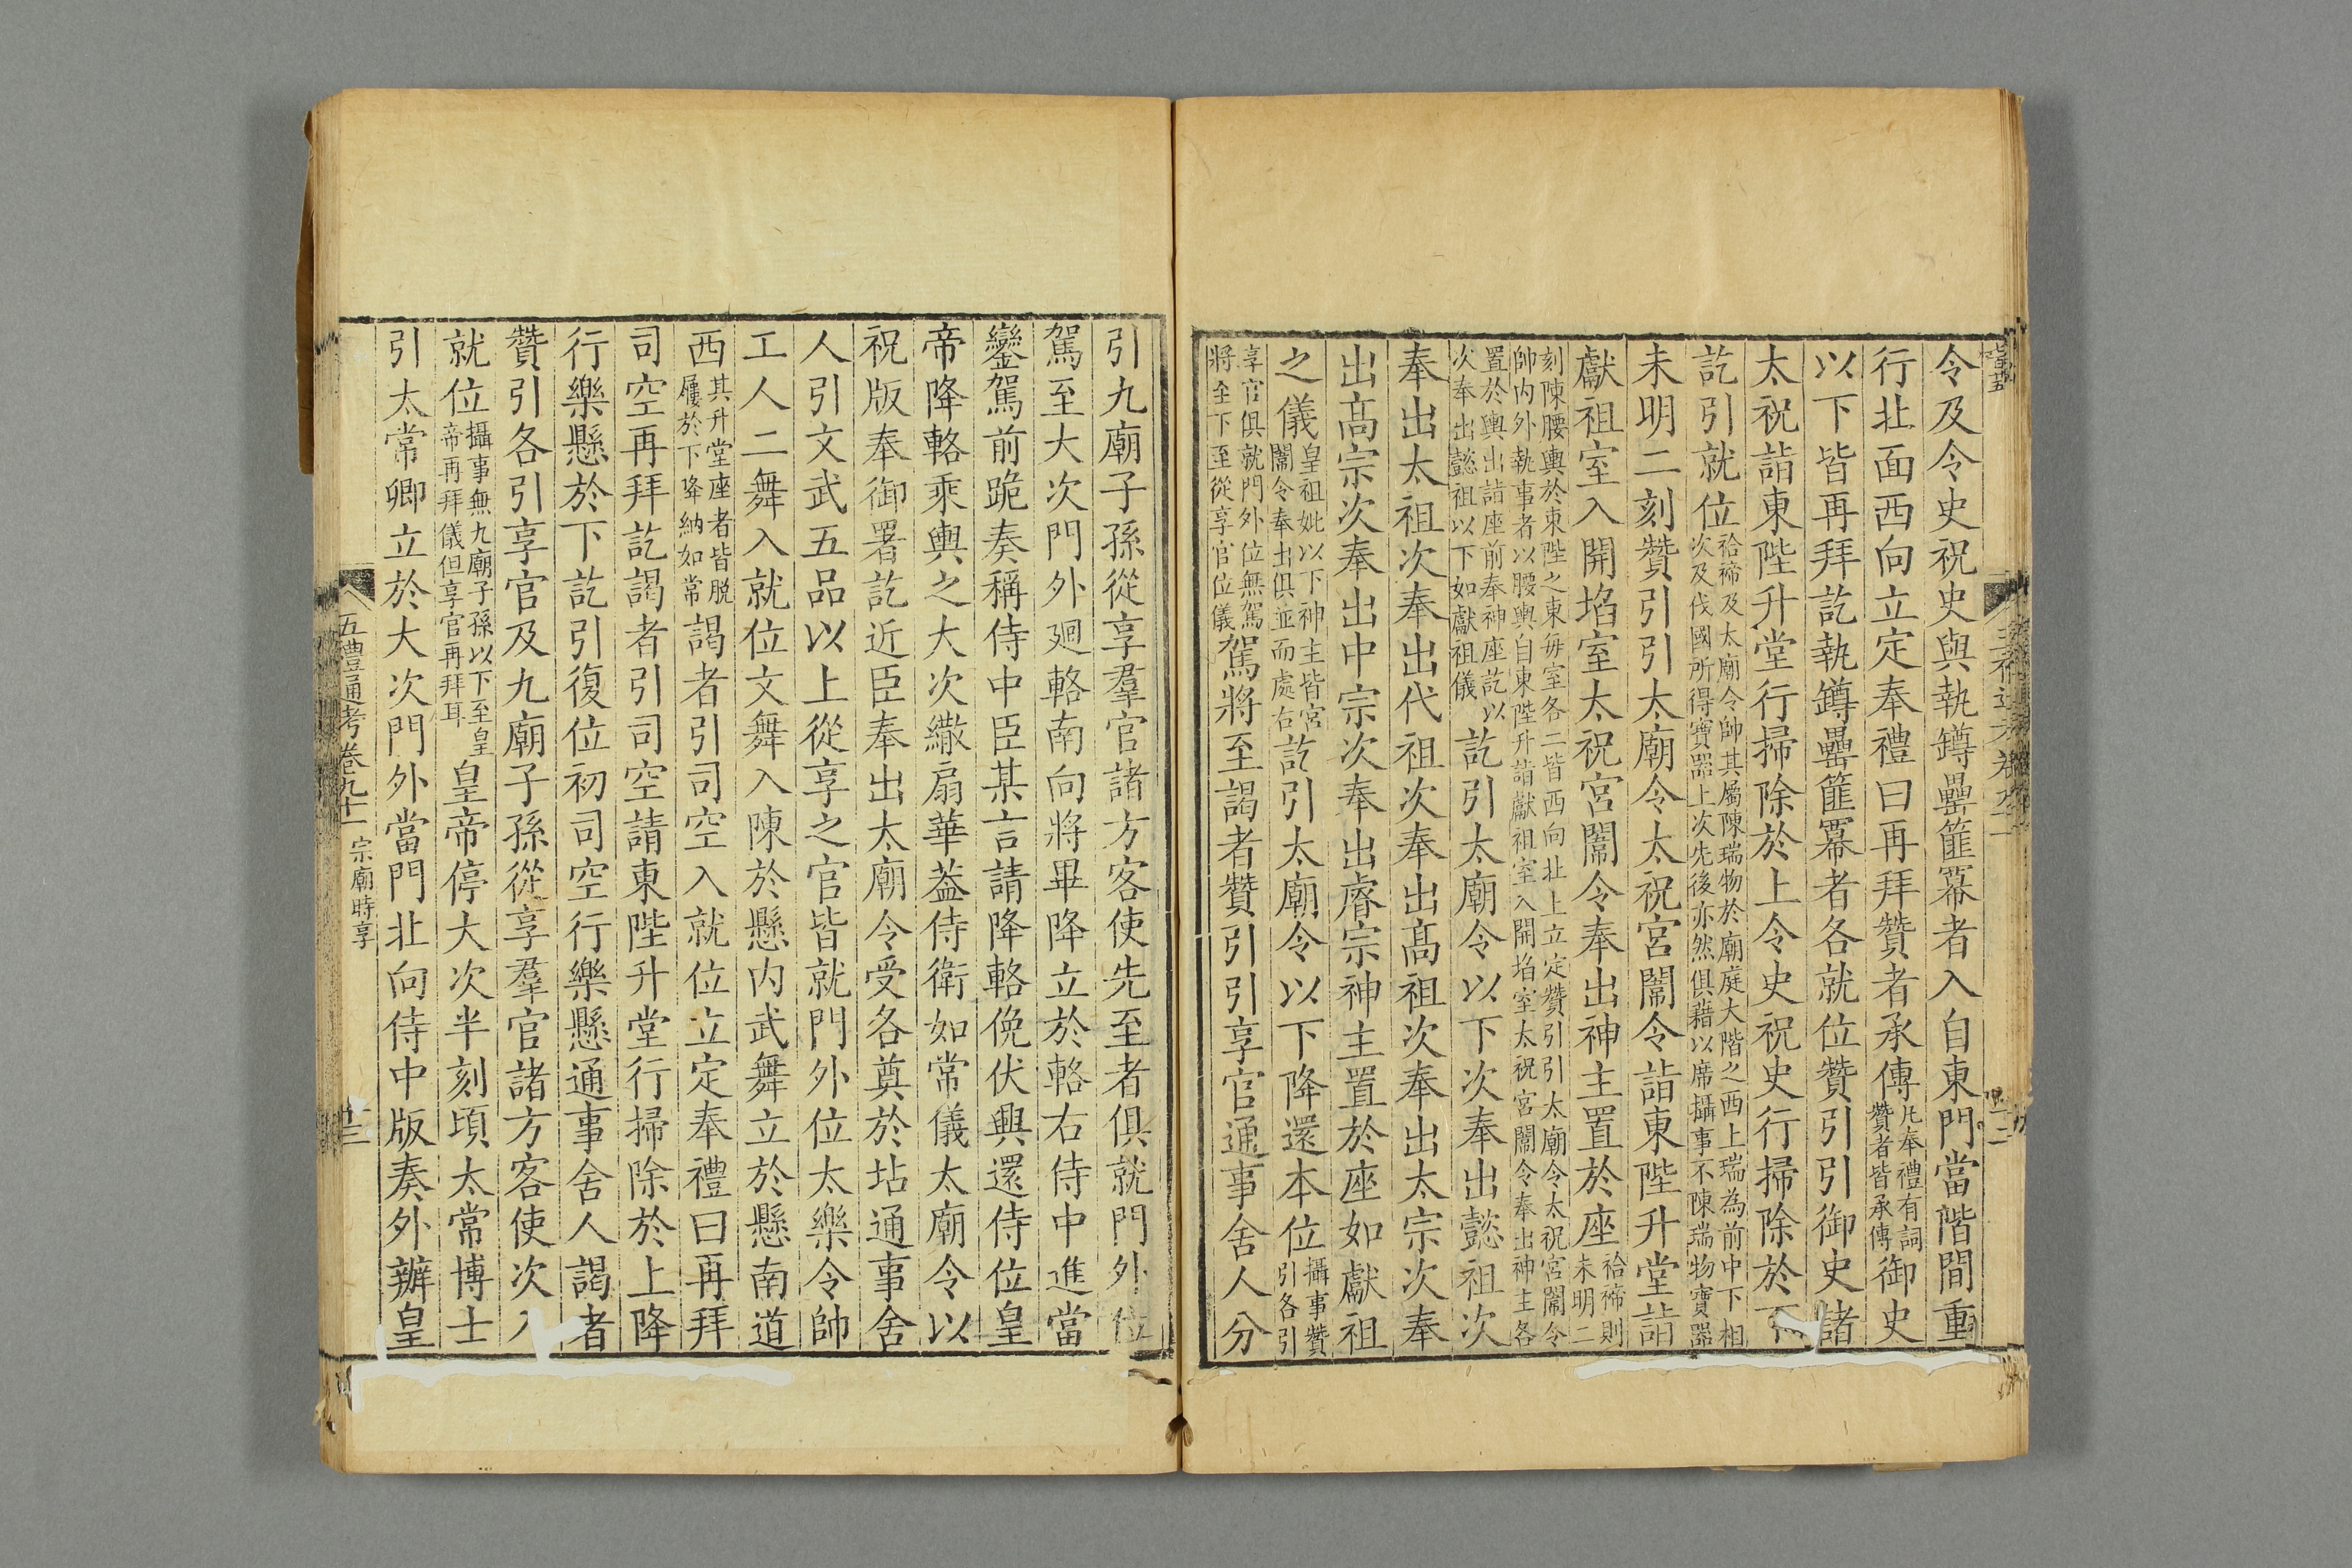 令及令史祝史與執罇罍篚冪者入自東門當階間重
行北面西向立定奉禮曰再拜贊者承傳凡奉禮有詞贊者皆承傳御史
以下皆再拜訖執罇罍篚冪者各就位贊引引御史諸
太祝詣東陛升堂行掃除於上令史祝史行掃除於下
訖引就位祫禘及太廟令帥其屬陳瑞物於廟庭大階之西上瑞為前中下相次及伐國所得寶器上次先後亦然俱藉以席攝事不陳瑞物寶器
未明二刻贊引引太廟令太祝宮闈令詣東陛升堂詣
獻祖室入開埳室太祝宮闈令奉出神主置於座祫禘則未明二
刻陳腰輿於東陛之東每室各二皆西向北上立定贊引引太廟令太祝宮闈令帥內外執事者以腰輿自東陛升詣獻祖室入開埳室太祝宮闈令奉出神主各
置於輿出詣座前奉神座訖以次奉出懿祖以下如獻祖儀訖引太廟令以下次奉出懿祖次
奉出太祖次奉出代祖次奉出髙祖次奉出太宗次奉
出髙宗次奉出中宗次奉出睿宗神主置於座如獻祖
之儀皇祖妣以下神主皆宮闈令奉出俱並而處右訖引太廟令以下降還本位攝事贊引各引
享官俱就門外位無駕將至下至從享官位儀駕將至謁者贊引引享官通事舍人分
引九廟子孫從享羣官諸方客使先至者俱就門外位
駕至大次門外廻輅南向將畢降立於輅右侍中進當
鑾駕前跪奏稱侍中臣某言請降輅俛伏興還侍位皇
帝降輅乘輿之大次繖扇華葢侍衛如常儀太廟令以
祝版奉御署訖近臣奉出太廟令受各奠於坫通事舍
人引文武五品以上從享之官皆就門外位太樂令帥
工人二舞入就位文舞入陳於懸內武舞立於懸南道
西其升堂座者皆脱屨於下降納如常謁者引司空入就位立定奉禮曰再拜
司空再拜訖謁者引司空請東陛升堂行掃除於上降
行樂懸於下訖引復位初司空行樂懸通事舍人謁者
贊引各引享官及九廟子孫從享羣官諸方客使次入
就位攝事無九廟子孫以下至皇帝再拜儀但享官再拜耳皇帝停大次半刻頃太常博士
引太常卿立於大次門外當門北向侍中版奏外辦皇
五禮通考卷九十一 宗廟時享